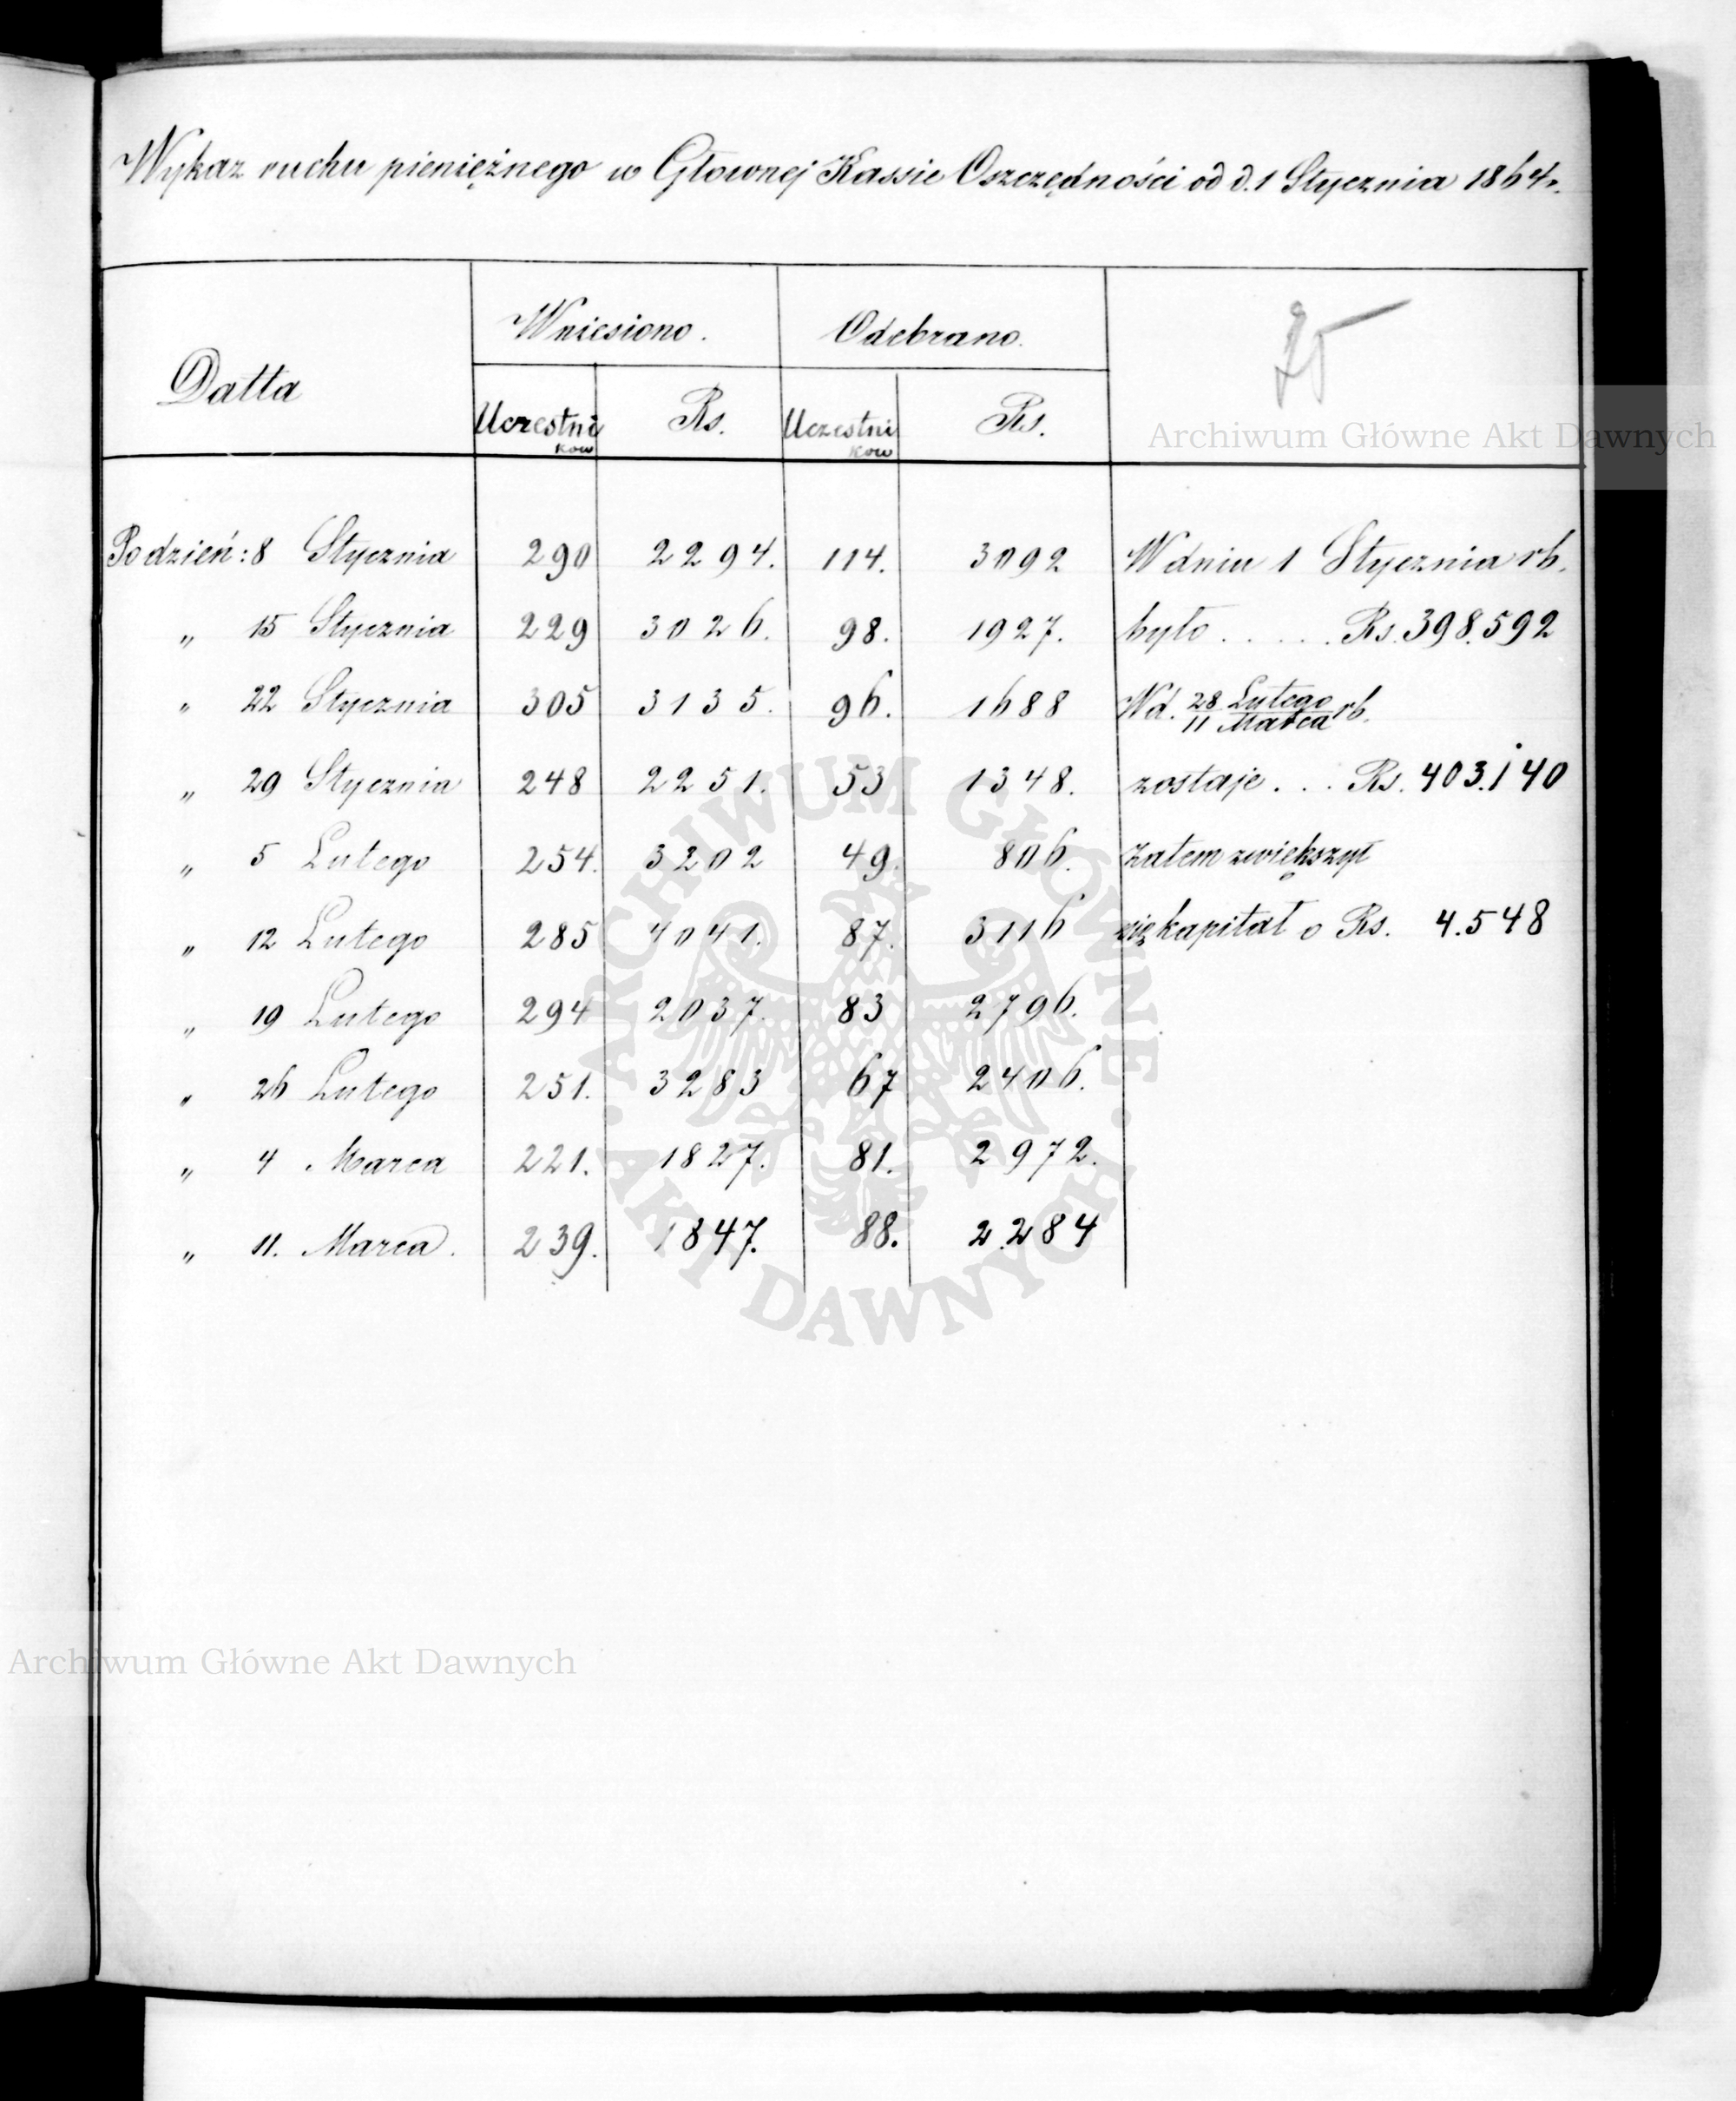 Wykaz ruchu pieniężnego w Głownej Kassie Oszczędności od d. 1 Stycznia 1864 r.
Datta Wniesiono. Odebrano.
Uczestni ków Rs. Uczestni ków Rs.
Archiwum Główne Akt Dawnych
Po dzień: 8 Stycznia 290 2294. 114. 3092 W dniu 1 Stycznia rb.
„ 15 Stycznia 229 3026. 98. 1927. było . . . . . Rs. 398.592
„ 22 Stycznia 305 3135. 96. 1688 W d. 28 Lutego / 11 Marca rb.
„ 29 Stycznia 248 2251. 53 1348. zostaje . . . Rs. 403.140
„ 5 Lutego 254. 3202 49. 806. Zatem zwiększył
„ 12 Lutego 285 4041. 87. 3116 się kapitał o Rs. 4.548
„ 19 Lutego 294 2037. 83 2796.
„ 26 Lutego 251. 3283 67 2406.
„ 4 Marca 221. 1827. 81. 2972.
„ 11. Marca. 239. 1847. 88. 2.284
ARCHIWUM GŁÓWNE · AKT DAWNYCH ·
Archiwum Główne Akt Dawnych